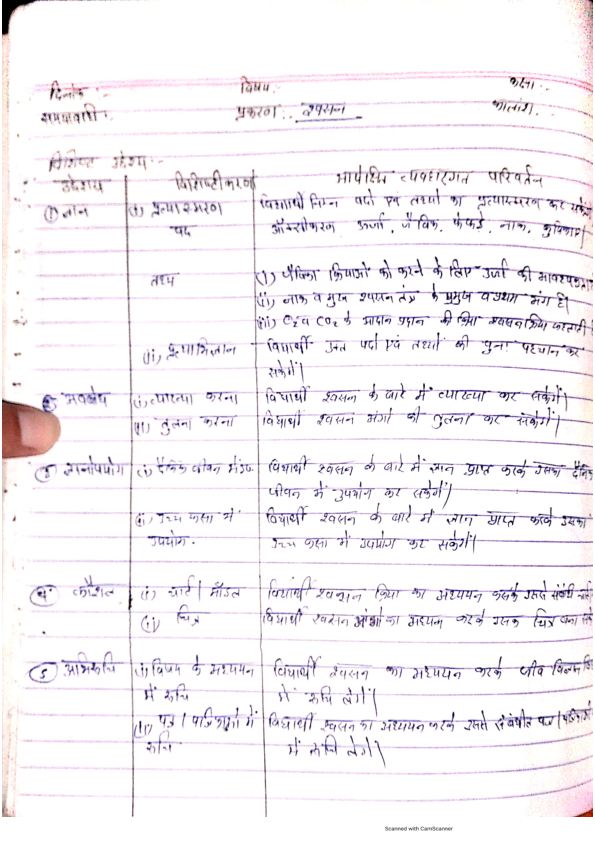 दिनांक :- विषय :- कक्षा :-
समयावधि :- प्रकरण :- श्वसन कालांश :-
विशिष्ट उद्देश्य :-
उद्देश्य विशिष्टीकरण अपेक्षित व्यवहारगत परिवर्तन
① ज्ञान (i) प्रत्यास्मरण विद्यार्थी निम्न पदों एवं तथ्यों का प्रत्यास्मरण कर सकेंगे
पद ऑक्सीकरण ऊर्जा, जैविक, फेफड़े, नाक, कूपिकाए|
तथ्य (i) जैविक क्रियाओं को करने के लिए उर्जा की आवश्यकता
(ii) नाक व मुख श्वसन तंत्र के प्रमुख व प्रथम अंग है|
(iii) O₂ व CO₂ के आदान प्रदान की क्रिया श्वसन क्रिया कहलाती
(ii) प्रत्याभिज्ञान विद्यार्थी उक्त पदों एवं तथ्यों की पुनः पहचान कर
सकेंगें|
② अवबोध (i) व्याख्या करना विद्यार्थी श्वसन के बारे में व्याख्या कर सकेंगें|
(ii) तुलना करना विद्यार्थी श्वसन अंगो की तुलना कर सकेंगें|
③ ज्ञानोपयोग (i) दैनिक जीवन में उप. विद्यार्थी श्वसन के बारे में ज्ञान प्राप्त करके उसका दैनिक
जीवन में उपयोग कर सकेगें|
(ii) उच्च कक्षा में विद्यार्थी श्वसन के बारे में ज्ञान प्राप्त करके उसका
उपयोग. उच्च कक्षा में उपयोग कर सकेगें|
④ कौशल (i) चार्ट | मॉडल विद्यार्थी श्वसन क्रिया का अध्ययन करके उससे संबंधी
(ii) चित्र विद्यार्थी श्वसन अंगो का अध्ययन करके उसका चित्र बना
⑤ अभिरूचि (i) विषय के अध्ययन विद्यार्थी श्वसन का अध्ययन करके जीव विज्ञान
में रूचि में रूचि लेगें|
(ii) पत्र | पत्रिकाओं में विद्यार्थी श्वसन का अध्ययन करके उससे संबंधीत पत्र | पत्रिकाओ
रूचि में रूचि लेगें|
Scanned with CamScanner